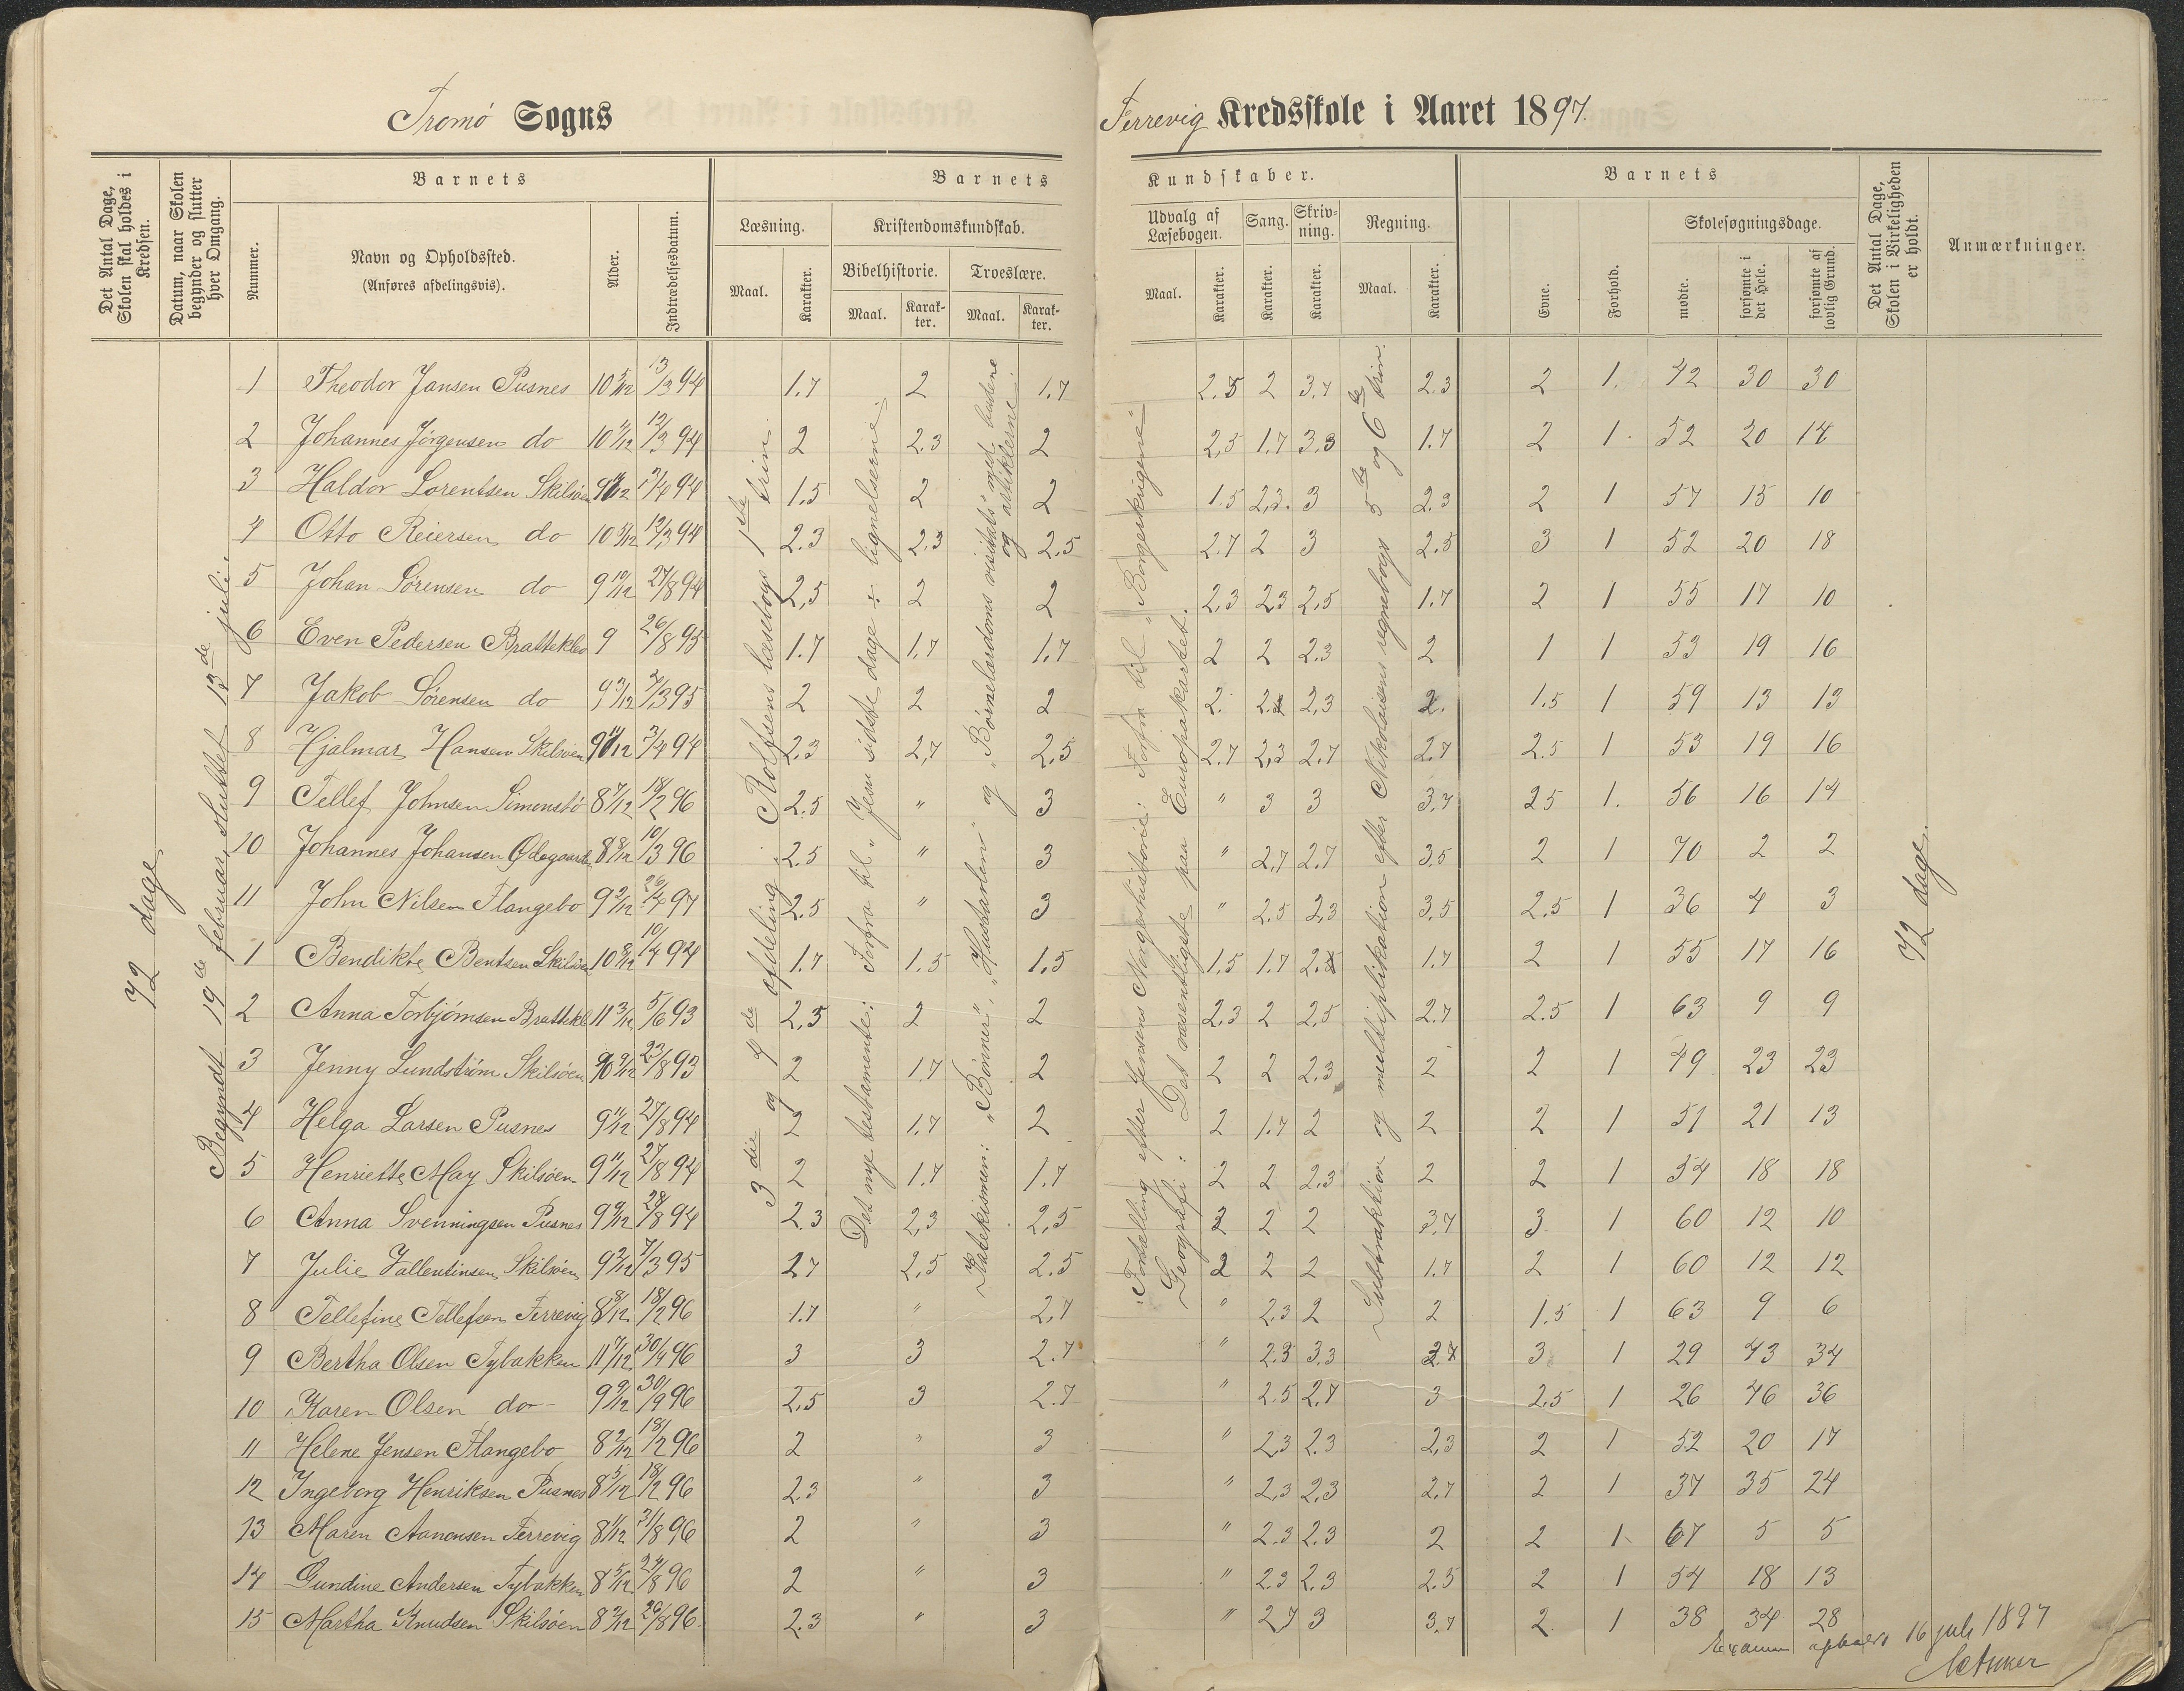 Tromö Sogns
Ferrevig Kredsskole i Aaret 1897.
Det Antal Dage, Skolen skal holdes i Kredsen.
Datum, naar Skolen begynder og slutter hver Omgang.
Barnets
Nummer.
Navn og Opholdssted.
(Anføres afdelingsvis).
Alder.
Indtrædelsesdatum.
Barnets
Læsning.
Maal.
Karakter.
Kristendomskundskab.
Bibelhistorie.
Maal.
Karakter.
Troeslære.
Maal.
Karakter.
Kundskaber.
Udvalg af Læsebogen.
Maal.
Karakter.
Sang.
Karakter.
Skrivning.
Karakter.
Regning.
Maal.
Karakter.
Barnets
Evne.
Forhold.
Skolesøgningsdage.
mødte.
forsømte i det Hele.
forsømte af lovlig Grund.
Det Antal Dage, Skolen i Virkeligheden er holdt.
Anmærkninger.
72 dage
Begyndt 19de februar, sluttet 13de juli.
3die og 4de afdeling. Rolfsens læsebogs 1ste trin.
Det nye testamente: Forfra til "Jesu sidste dage" ÷ lignelserne.
Katekismen: "Bönner", "Hustavlen" og "Börnelærdoms visitets" med budene og artiklerne.
Fortælling efter Jensens Norgeshistorie: Forfra til "Borgerkrigene"
Geografi: Det væsentligste paa Europakartet.
Subtraktion og multiplikation efter Nikolaisens regnebogs 5te og 6te trin.
72 dage.
1 Theodor Jansen Pusnes 10 5/12 13/3 94 1.7 2 1.7 2.5 2 3.7 2.3 2 1. 42 30 30
2 Johannes Jörgensen do 10 11/12 12/3 94 2 2.3 2 2,5 1.7 3.3 1.7 2 1. 52 20 14
3 Haldor Lorentsen Skilsöen 9 11/12 2/4 94 1.5 2 2 1.5 2,3. 3 2.3 2 1 57 15 10
4 Otto Reiersen do 10 5/12 12/3 94 2.3 2.3 2.5 2.7 2 3 2.5 3 1 52 20 18
5 Johan Sörensen do 9 10/12 27/8 94 2,5 2 2 2,3 2,3 2,5 1.7 2 1 55 17 10
6 Even Pedersen Bratteklev 9 26/8 95 1.7 1,7 1,7 2 2 2.3 2 1 1 53 19 16
7 Jakob Sörensen do 9 3/12 7/3 95 2 2 2 2. 2.3 2. 1.5 1 59 13 13
8 Hjalmar Hansen Skilsöen 9 11/12 3/4 94 2.3 2,7 2,5 2.7 2,3 2.7 2.7 2.5 1 53 19 16
9 Tellef Johnsen Simonstö 8 7/12 18/2 96 2.5 " 3 " 3 3 3.7 2.5 1. 56 16 14
10 Johannes Johansen Ödegaard 8 8/12 10/3 96 2.5 " 3 " 2,7 2.7 3,5 2 1 70 2 2
11 John Nilsen Flangebo 9 2/12 26/4 97 2.5 " 3 " 2.5 2,3 3,5 2.5 1 36 4 3
1 Bendikte Bentsen Skilsöen 10 9/12 10/4 94 1.7 1.5 1.5 1.5 1.7 1.7 2 1 55 17 16
2 Anna Torbjörnsen Brattekl 11 3/12 5/6 93 2,5 2 2 2.3 2 2,5 2.7 2.5 1 63 9 9
3 Jenny Lundström Skilsöen 10 9/12 23/8 93 2 1.7 2 2 2 2.3 2 2 1 49 23 23
4 Helga Larsen Pusnes 9 11/12 27/8 94 2 1.7 2 2 1.7 2 2 2 1 51 21 13
5 Henriette May Skilsöen 9 11/12 27/8 94 2 1.7 1.7 2 2 2.3 2 2 1 54 18 18
6 Anna Svenningsen Pusnes 9 9/12 28/8 94 2.3 2,3 2,5 2 2 2 3.7 3. 1 60 12 10
7 Julie Vallentinsen Skilsöen 9 2/12 7/3 95 2.7 2,5 2.5 2 2 2 1.7 2 1 60 12 12
8 Tellefine Tellefsen Ferrevig 8 8/12 18/2 96 1.7 " 2,7 " 2.3 2 2 1.5 1 63 9 6
9 Bertha Olsen Tybakken 11 7/12 30/9 96 3 3 2.7 " 2.3 3.3 2.7 3 1 29 43 34
10 Karen Olsen do 9 9/12 30/9 96 2,5 3 2.7 " 2.5 2,7 3 2,5 1 26 46 36
11 Helene Jensen Flangebo 8 2/12 18/2 96 2 " 3 " 2,3 2.3 2,3 2 1 52 20 17
12 Ingeborg Henriksen Pusnes 8 5/12 18/2 96 2.3 " 3 " 2,3 2,3 2,7 2 1 37 35 24
13 Maren Aanonsen Ferrevig 8 11/12 31/8 96 2 " 3 " 2.3 2.3 2 2 1 67 5 5
14 Gundine Andersen Tybakken 8 5/12 24/8 96 2 " 3 " 2.3 2.3 2.5 2 1 54 18 13
15 Martha Knudsen Skilsöen 8 2/12 26/8 96. 2.3 " 3 " 2.7 3 3.7 2. 1 38 34 28
Examen afholdt 16 juli 1897